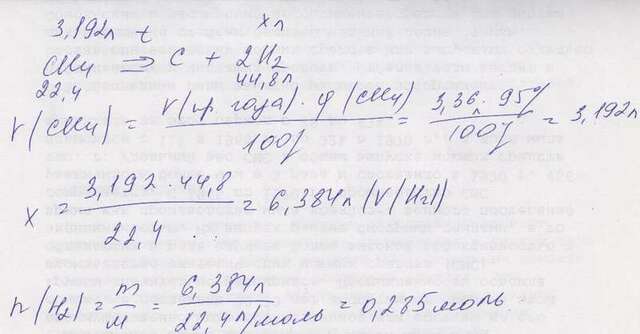 3,192л t xл
CH4 => C + 2H2
22,4 44,8л
V(CH4) = V(пр года) · φ(CH4) / 100% = 3,36л · 95% / 100% = 3,192л
x = 3,192 · 44,8 / 22,4 = 6,384л (V(H2))
n(H2) = m/M = 6,384л / 22,4л/моль = 0,285моль